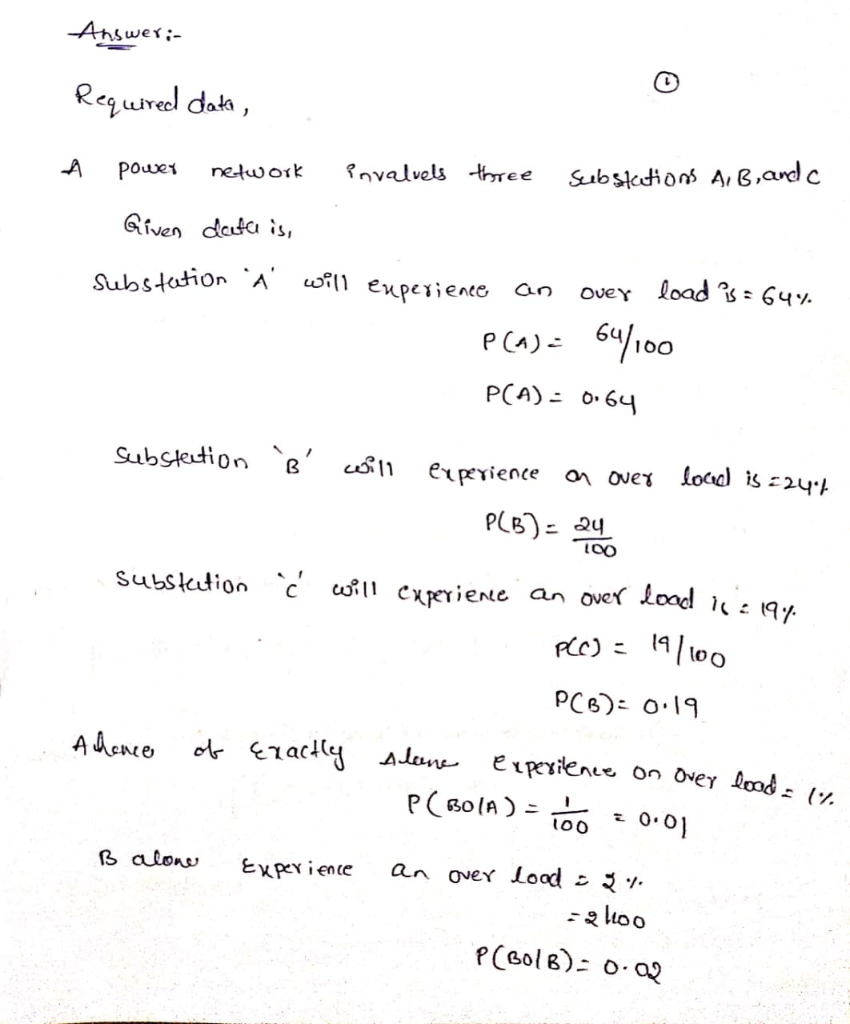 Answer:-
①
Required data,
A power network invalvels three substations A, B, and C
Given data is,
Substation 'A' will experience an over load is = 64%
P(A) = 64/100
P(A) = 0.64
Substation 'B' will experience an over load is = 24%
P(B) = 24/100
Substation 'c' will experience an over load is = 19%
P(C) = 19/100
P(B) = 0.19
Ahence of Exactly Alene experience on over load = 1%
P(BO|A) = 1/100 = 0.01
B alone Experience an over load = 2%
= 2/100
P(BO|B) = 0.02